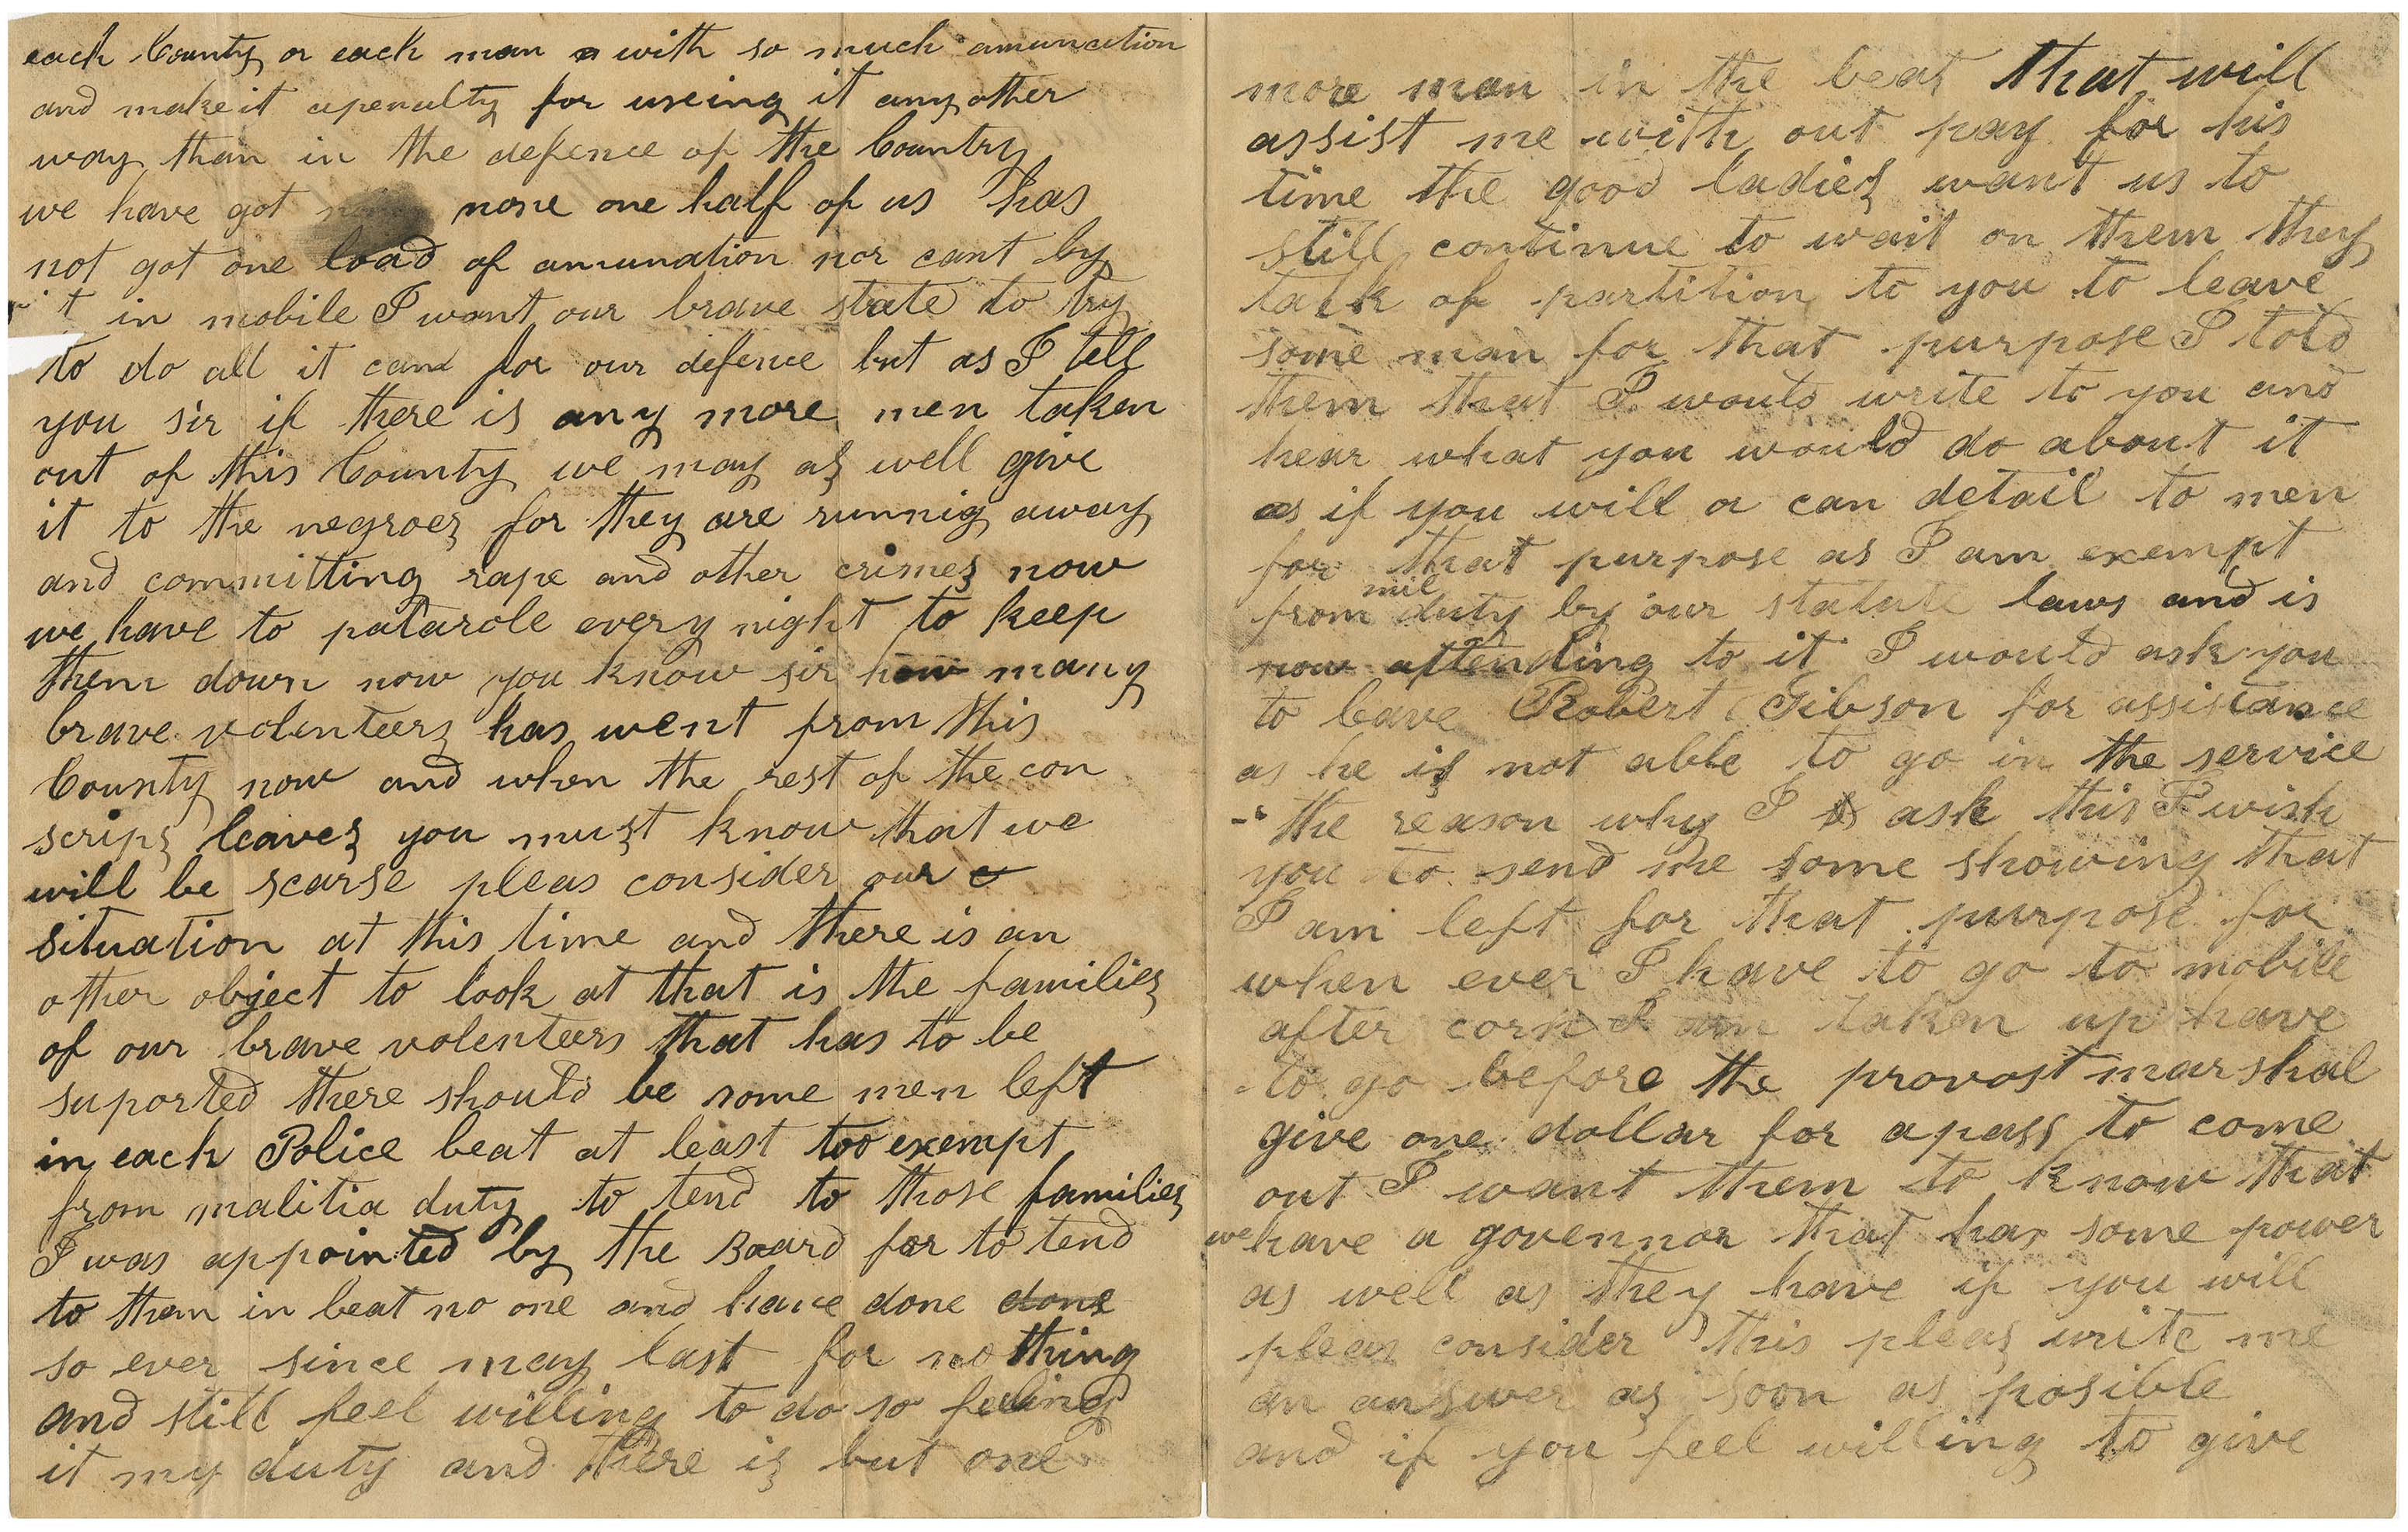 each County or each man with so much amuncution
and make it apenulty for useing it any other
way than in the defence of the Country
we have got none one half of us has
not got one load of amunation nor cant by
it in mobile I want our brave state to try
to do all it can for our defence but as I tell
you sir if there is any more men taken
out of this County we may as well give
it to the negroes for they are runnig away
and committing rape and other crimes now
we have to patarole every night to keep
them down now you know sir how many
brave volenteers has went from this
County now and when the rest of the con
scrips leaves you must know that we
will be scarse pleas consider our
situation at this time and there is an
other object to look at that is the families
of our brave volenteers that has to be
suported there should be some men left
in each Police beat at least too exempt
from malitia duty to tend to those families
I was appointed by the Board for to tend
to them in beat no one and have done done
so ever since may last for no thing
and still feel willing to do so feeling
it my duty and there is but one
more man in the beat that will
assist me with out pay for his
time the good ladies want us to
still continue to wait on them they
talk of partition to you to leave
some man for that purpose I told
them that I would write to you and
hear what you would do about it
as if you will or can detail to men
for that purpose as I am exempt
from mil duty by our statute laws and is
now attending to it I would ask you
to leave Robert Gibson for assistance
as he is not able to go in the service
the reason why I ask this I wish
you to send me some showing that
I am left for that purpose for
when ever I have to go to mobile
after corn I am taken up have
to go before the provost marshal
give one dollar for apass to come
out I want them to know that
we have a govennor that has some power
as well as they have if you will
pleas consider this pleas write me
an answer as soon as posible
and if you feel willing to give